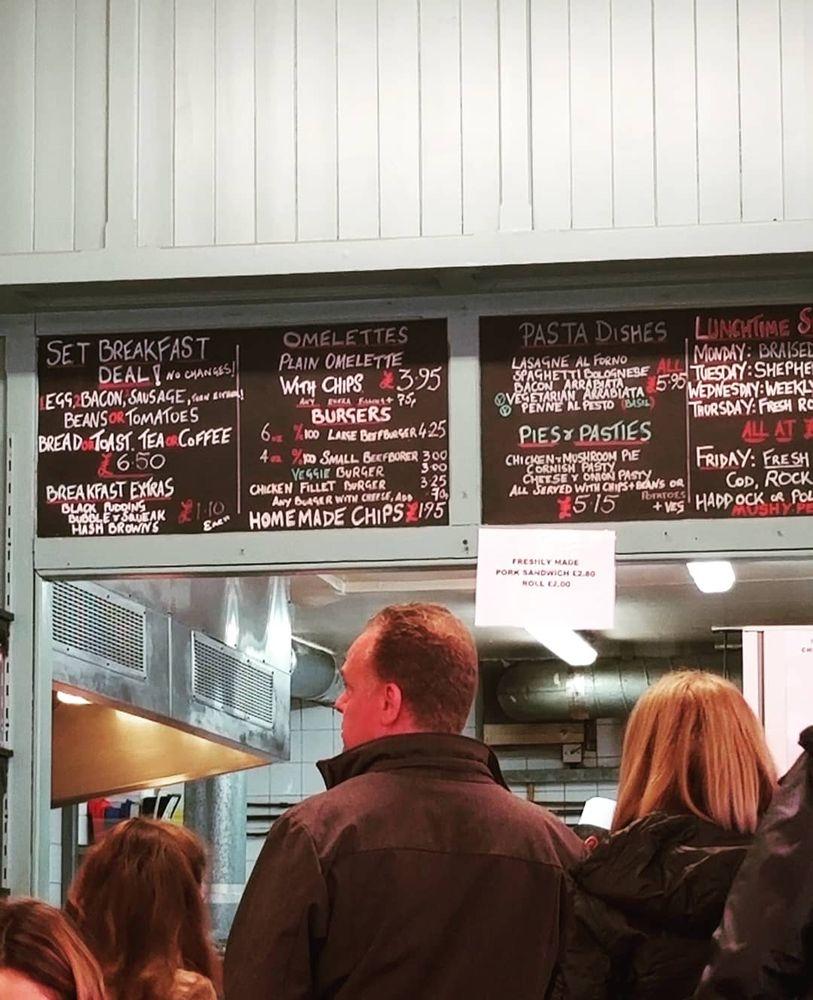 SET BREAKFAST
DEAL! NO CHANGES!
1 EGG, 2 BACON, SAUSAGE,
BEANS OR TOMATOES
BREAD OR TOAST. TEA OR COFFEE
£6.50
BREAKFAST EXTRAS
BLACK PUDDING
BUBBLE & SQUEAK
HASH BROWNS
£1.10
EACH
OMELETTES
PLAIN OMELETTE
WITH CHIPS £3.95
ANY EXTRA + 75p
BURGERS
6oz %100 LARGE BEEFBURGER 4.25
4oz %100 SMALL BEEFBURGER 3.00
VEGGIE BURGER 3.00
CHICKEN FILLET BURGER 3.25
ANY BURGER WITH CHEESE, ADD 70p
HOMEMADE CHIPS £1.95
PASTA DISHES
LASAGNE AL FORNO
SPAGHETTI BOLOGNESE
BACON ARRABIATA
V VEGETARIAN ARRABIATA
V PENNE AL PESTO (BASIL)
ALL
£5.95
PIES & PASTIES
CHICKEN & MUSHROOM PIE
CORNISH PASTY
CHEESE & ONION PASTY
ALL SERVED WITH CHIPS & BEANS OR
POTATOES
£5.15 + VEG
LUNCHTIME S
MONDAY: BRAISED
TUESDAY: SHEPHE
WEDNESDAY: WEEKLY
THORSDAY: FRESH RO
ALL AT £
FRIDAY: FRESH
COD, ROCK
HADDOCK OR POL
MUSHY PE
FRESHLY MADE
PORK SANDWICH £2.80
ROLL £2.00